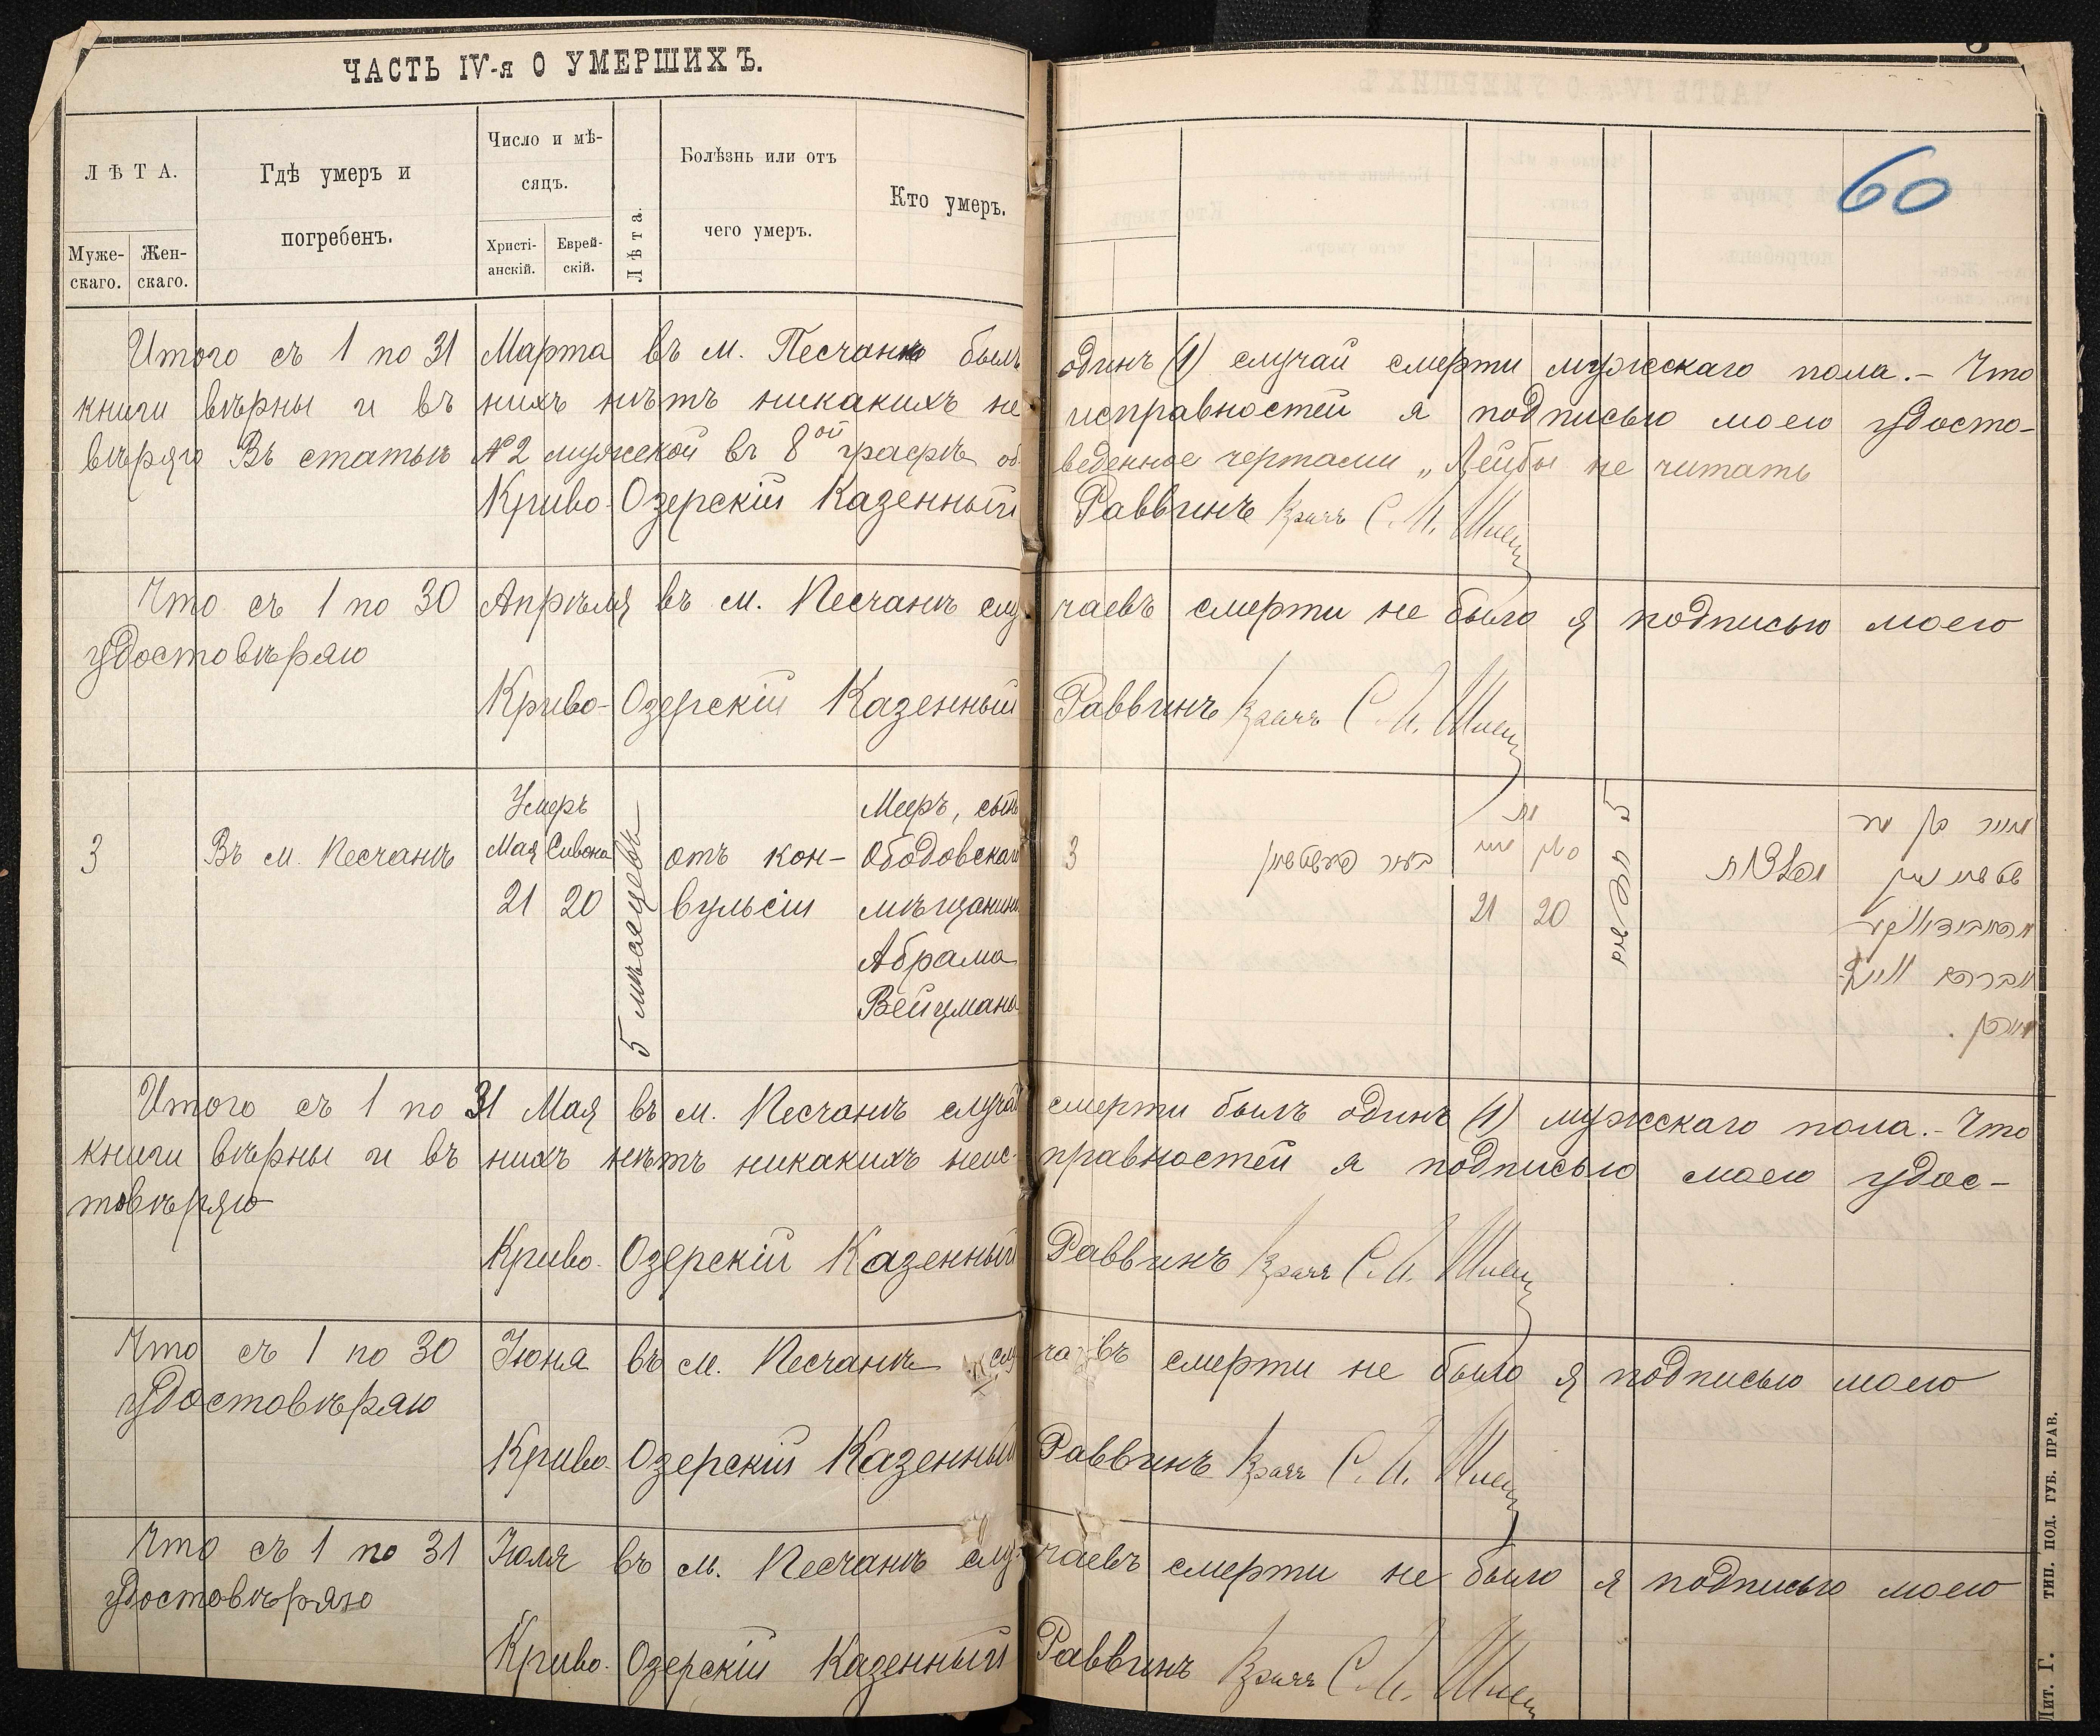 ЧАСТЬ IV-я О УМЕРШИХЪ.
60
ЛѢТА.
Муже-
скаго.
Жен-
скаго.
Гдѣ умеръ и
погребенъ.
Число и мѣ-
сяцъ.
Христі-
анскій.
Еврей-
скій.
Лѣта.
Болѣзнь или отъ
чего умеръ.
Кто умеръ.
Итого съ 1 по 31 Марта въ м. Песчанкѣ былъ одинъ (1) случай смерти мужскаго пола.- Что
книги вѣрны и въ нихъ нѣтъ никакихъ не исправностей я подписью моею удосто-
вѣряю Въ статьѣ №2 мужской въ 8ой графѣ об веденное чертами „Лейбы не читать
Криво-Озерскій Казенный Раввинъ Врачъ С. И.
Что съ 1 по 30 Апрѣля въ м. Песчанкѣ слу чаевъ смерти не было я подписью моею
удостовѣряю
Криво-Озерскій Казенный Раввинъ Врачъ С. И.
3
Въ м. Песчанкѣ
Умеръ
Мая Сивона
21 20
5 мѣсяцевъ
отъ кон-
вульсіи
Мееръ, сынъ
Ободовскаго
мѣщанина
Абрама
Вейцмана
3
מת
מאי סיון
21 20
5
מאיר בן
אברהם
מאן.
Итого съ 1 по 31 Мая въ м. Песчанкѣ случай смерти былъ одинъ (1) мужскаго пола.- Что
книги вѣрны и въ нихъ нѣтъ никакихъ неис- правностей я подписью моею удос-
товѣряю
Криво-Озерскій Казенный Раввинъ Врачъ С. И.
Что съ 1 по 30 Іюня въ м. Песчанкѣ слу чаевъ смерти не было я подписью моею
удостовѣряю
Криво-Озерскій Казенный Раввинъ Врачъ С. И.
Что съ 1 по 31 Іюля въ м. Песчанкѣ слу- чаевъ смерти не было я подписью моею
удостовѣряю
Криво-Озерскій Казенный Раввинъ Врачъ С. И.
Лит. Г. ТИП. ПОД. ГУБ. ПРАВ.